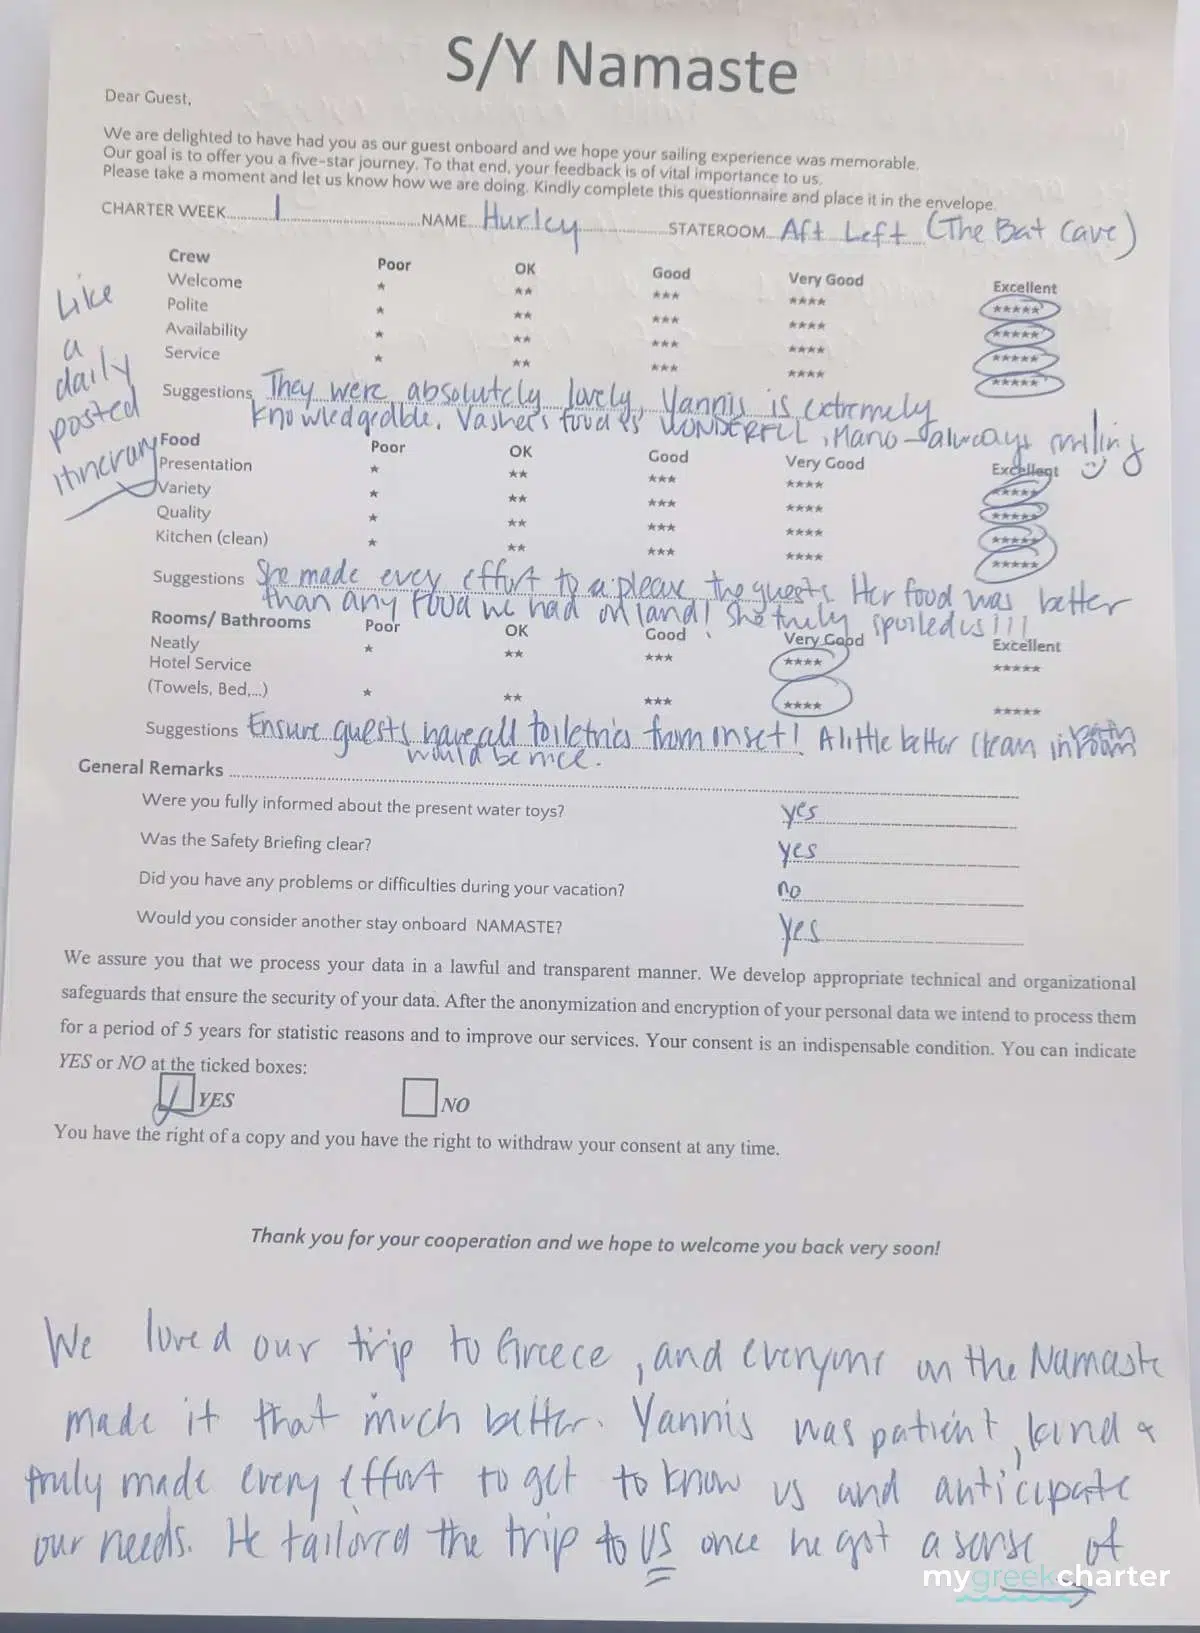 S/Y Namaste
Dear Guest,
We are delighted to have had you as our guest onboard and we hope your sailing experience was memorable.
Our goal is to offer you a five-star journey. To that end, your feedback is of vital importance to us.
Please take a moment and let us know how we are doing. Kindly complete this questionnaire and place it in the envelope.
CHARTER WEEK 1 NAME Hurley STATEROOM Aft Left (The Bat Cave)
Crew Poor OK Good Very Good Excellent
Welcome * ** *** **** *****
Polite * ** *** **** *****
Availability * ** *** **** *****
Service * ** *** **** *****
Like
a
daily
posted
itinerary
Suggestions They were absolutely lovely, Yannis is extremely
knowledgeable. Vasher's food is WONDERFUL, Mano - always smiling
Food Poor OK Good Very Good Excellent
Presentation * ** *** **** *****
Variety * ** *** **** *****
Quality * ** *** **** *****
Kitchen (clean) * ** *** **** *****
Suggestions She made every effort to please the guests. Her food was better
than any food we had on land! She truly spoiled us!!!
Rooms/ Bathrooms Poor OK Good Very Good Excellent
Neatly * ** *** **** *****
Hotel Service
(Towels, Bed,...) * ** *** **** *****
Suggestions Ensure guests have all toiletries from onset! A little better clean in bathroom
would be nice.
General Remarks
Were you fully informed about the present water toys? yes
Was the Safety Briefing clear? yes
Did you have any problems or difficulties during your vacation? no
Would you consider another stay onboard NAMASTE? Yes
We assure you that we process your data in a lawful and transparent manner. We develop appropriate technical and organizational
safeguards that ensure the security of your data. After the anonymization and encryption of your personal data we intend to process them
for a period of 5 years for statistic reasons and to improve our services. Your consent is an indispensable condition. You can indicate
YES or NO at the ticked boxes:
YES NO
You have the right of a copy and you have the right to withdraw your consent at any time.
Thank you for your cooperation and we hope to welcome you back very soon!
We loved our trip to Greece, and everyone on the Namaste
made it that much better. Yannis was patient, kind &
truly made every effort to get to know us and anticipate
our needs. He tailored the trip to US once he got a sense of
mygreekcharter